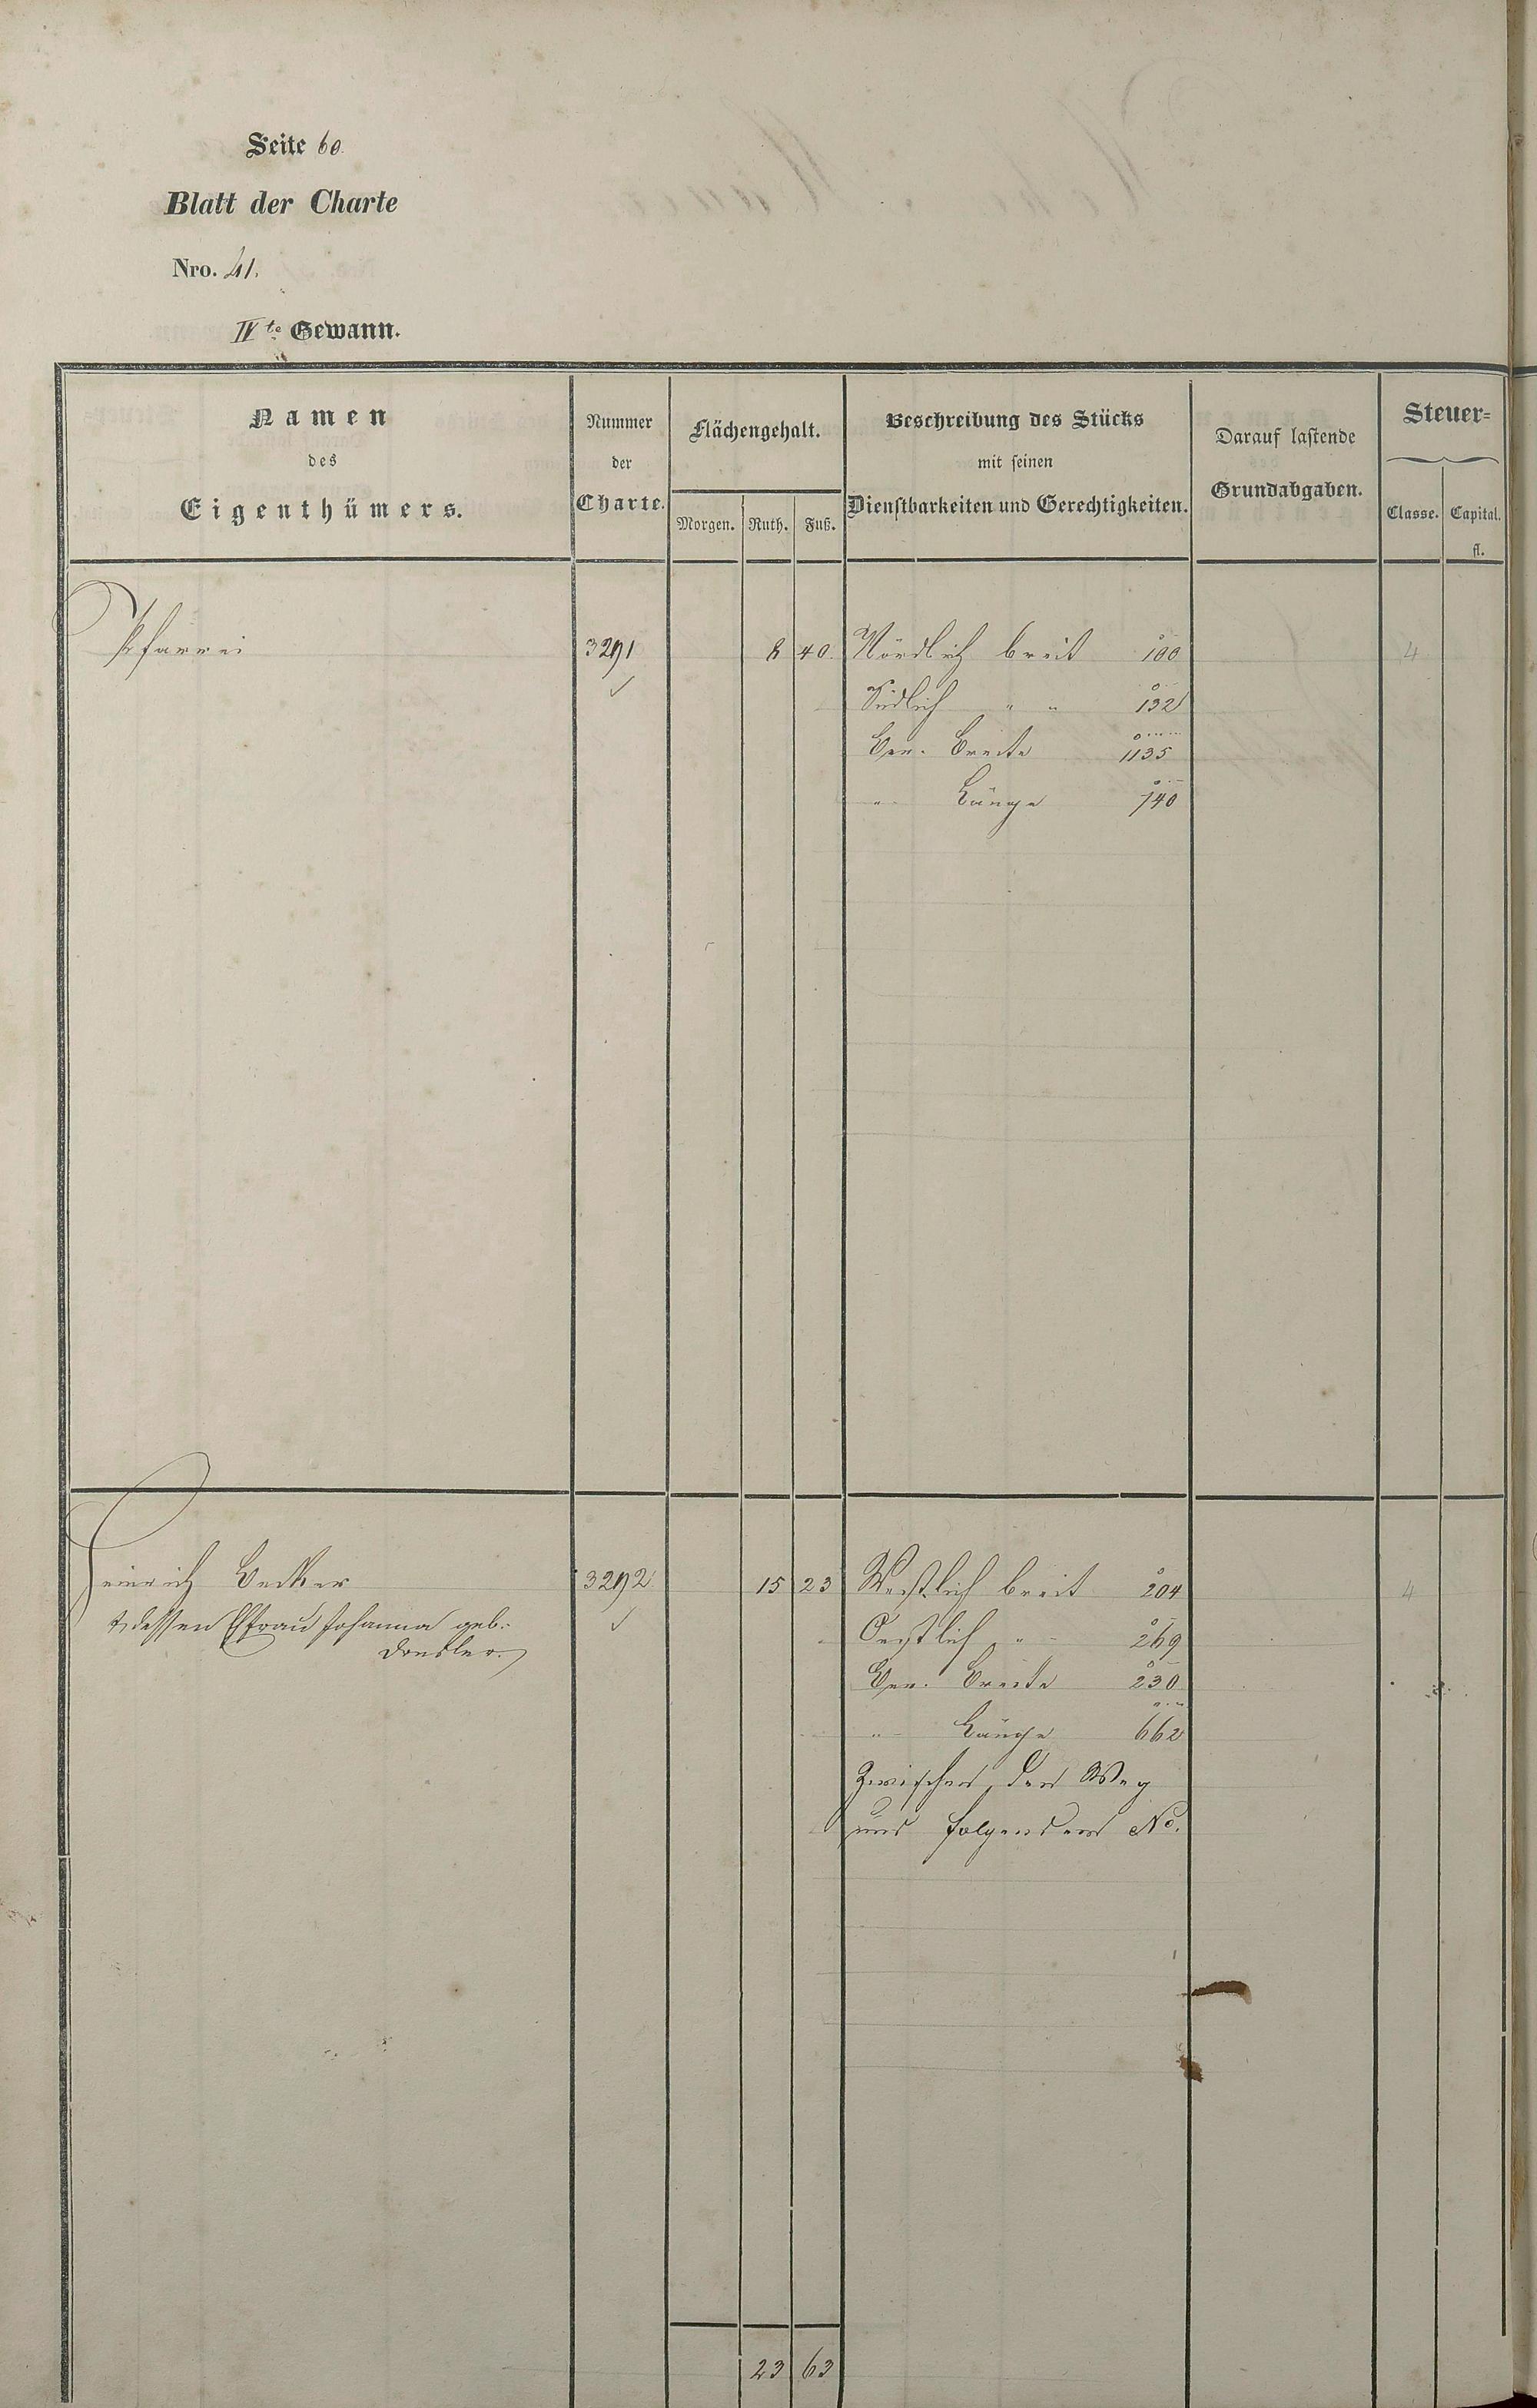 Seite 60.
Blatt der Charte
Nro. 41.
IVte Gewann.
Namen des Eigenthümers.
Nummer der Charte.
Flächengehalt.
Morgen. Ruth. Fuß.
Beschreibung des Stücks mit seinen Dienstbarkeiten und Gerechtigkeiten.
Darauf lastende Grundabgaben.
Steuer=
Classe. Capital. fl.
Pfarrei 3291 8 40. Nördlich breit 100 4
Südlich " " 132
Ger. Breite 1135
" Länge 740
Heinrich Becker 3292 15 23 Westlich breit 204 4
& dessen Ehfrau Johanna geb. Oestlich " 269
Ger. Breite 230
" Länge 662
Zwischen dem Weg
und folgenden No.
23 63